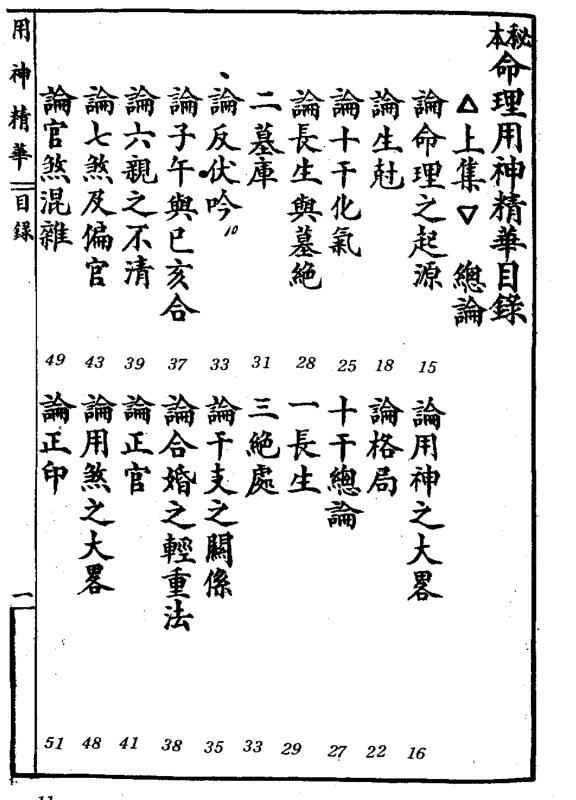 秘本命理用神精華目錄
△上集▽ 總論
論命理之起源 15 論用神之大畧 16
論生尅 18 論格局 22
論十干化氣 25 十干總論 27
論長生與墓絕 28 一長生 29
二墓庫 31 三絕處 33
論反伏吟 33 論干支之關係 35
論子午與巳亥合 37 論合婚之輕重法 38
論六親之不清 39 論正官 41
論七煞及偏官 43 論用煞之大畧 48
論官煞混雜 49 論正印 51
用神精華 目錄 一